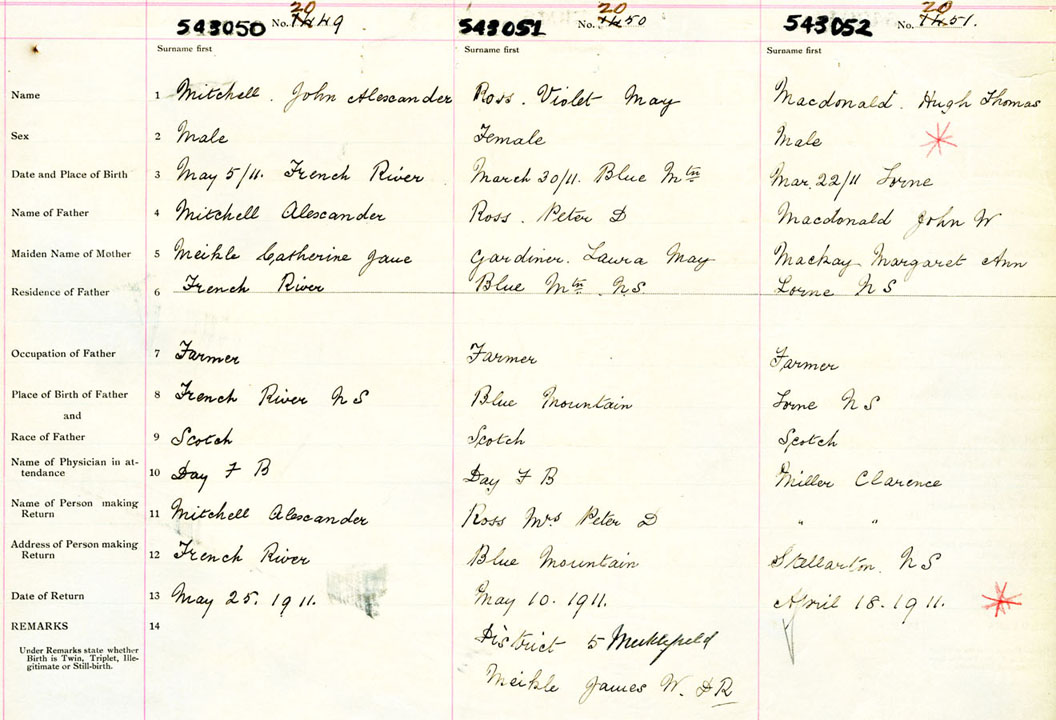 543050 No. 20 7449 543051 No. 20 7450 543052 No. 20 7451.
Surname first Surname first Surname first
Name 1 Mitchell. John Alexander Ross. Violet May Macdonald. Hugh Thomas
Sex 2 Male Female Male
Date and Place of Birth 3 May 5/11. French River March 30/11. Blue Mtn Mar. 22/11 Lorne
Name of Father 4 Mitchell Alexander Ross. Peter D Macdonald John W
Maiden Name of Mother 5 Meikle Catherine Jane Gardiner. Laura May Mackay Margaret Ann
Residence of Father 6 French River Blue Mtn. N.S. Lorne N S
Occupation of Father 7 Farmer Farmer Farmer
Place of Birth of Father 8 French River N S Blue Mountain Lorne N S
and
Race of Father 9 Scotch Scotch Scotch
Name of Physician in at-
tendance 10 Day F B Day F B Miller Clarence
Name of Person making
Return 11 Mitchell Alexander Ross Mrs Peter D " "
Address of Person making
Return 12 French River Blue Mountain Stellarton. N S
Date of Return 13 May 25. 1911. May 10. 1911. April 18. 1911.
REMARKS 14
Under Remarks state whether
Birth is Twin, Triplet, Ille-
gitimate or Still-birth.
District 5 Meiklefield
Meikle James W. D R